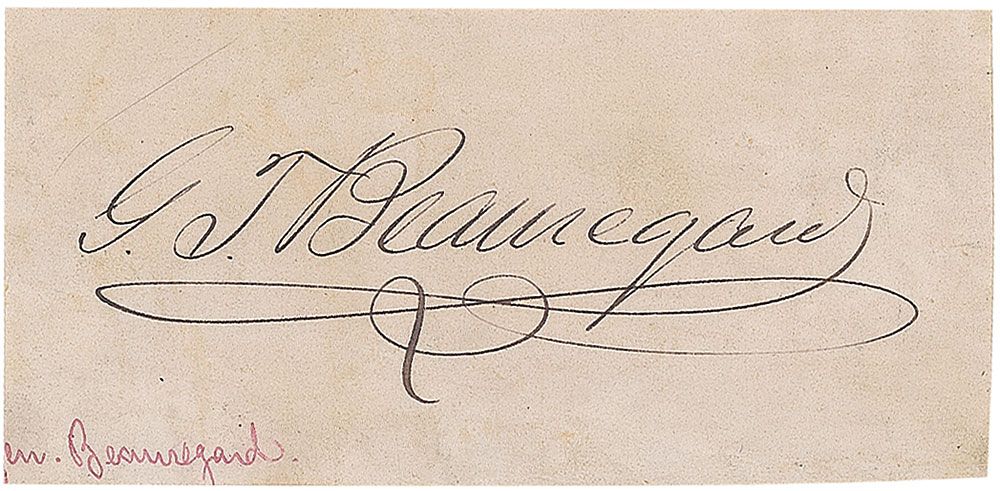 G. T. Beauregard
en. Beauregard.